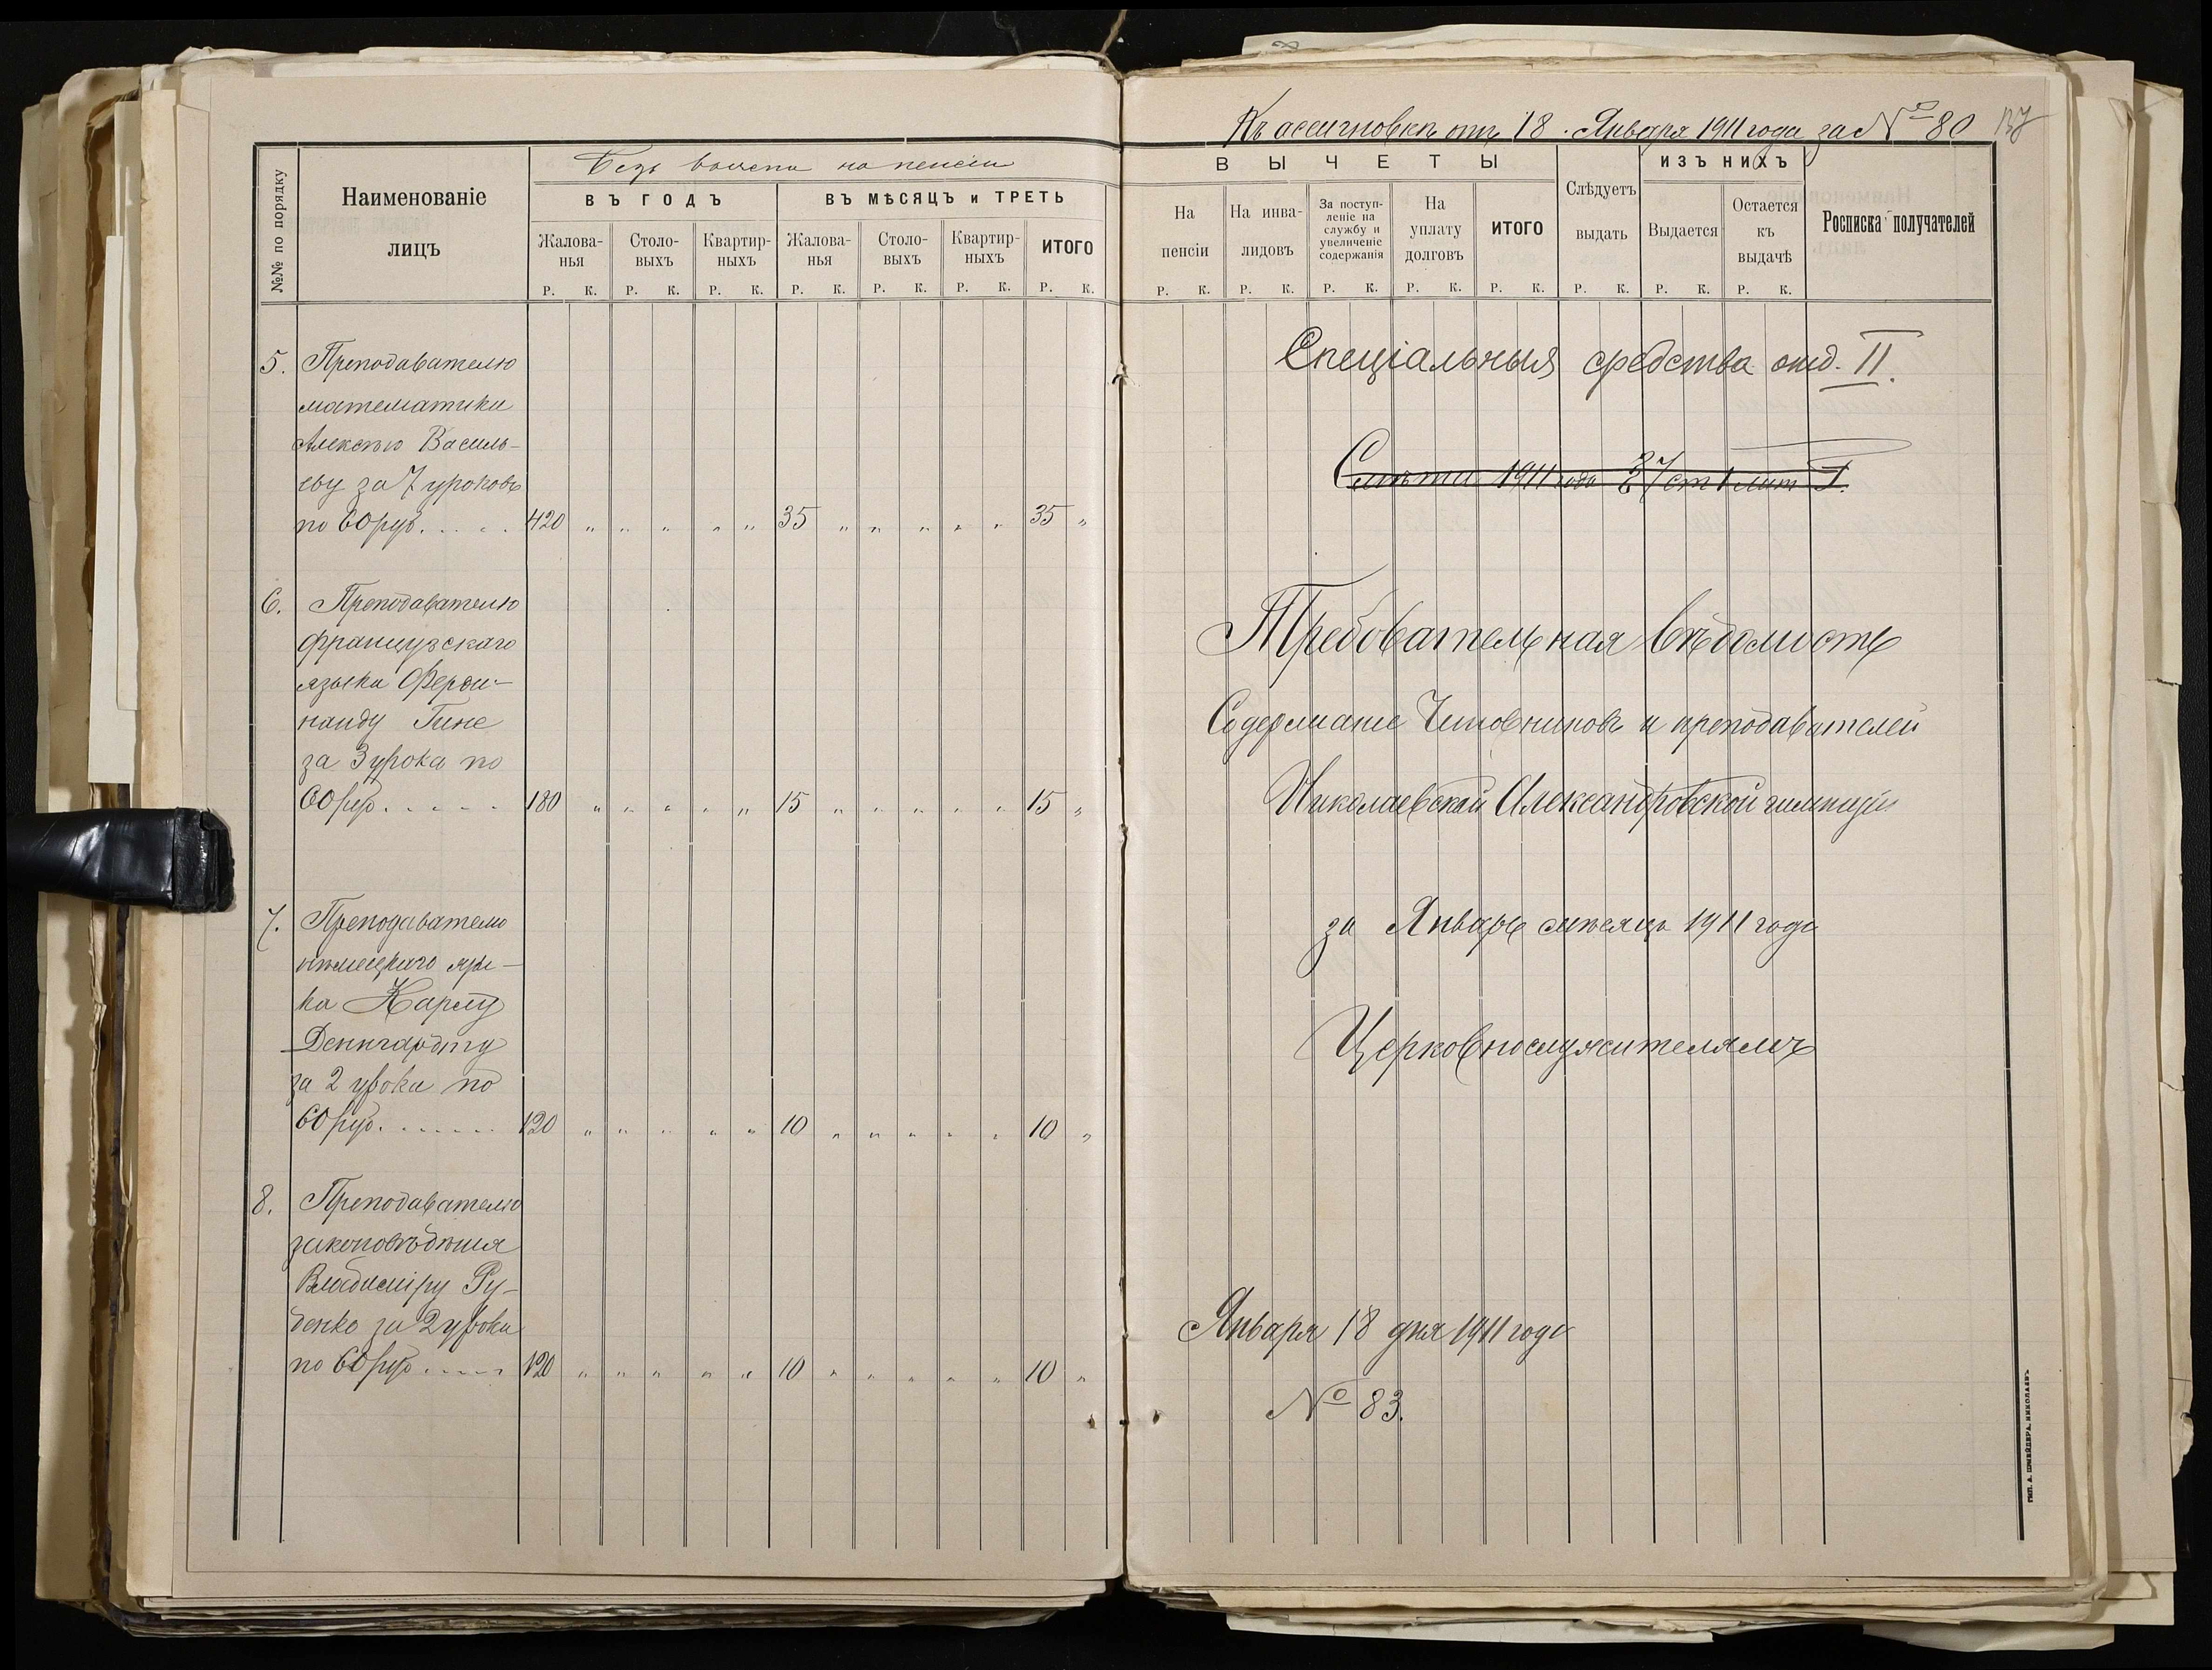 Безъ вычета на пенсіи
№№ по порядку
Наименованіе
лицъ
ВЪ ГОДЪ
ВЪ МѢСЯЦЪ и ТРЕТЬ
Жалова-
нья
Столо-
выхъ
Квартир-
ныхъ
Жалова-
нья
Столо-
выхъ
Квартир-
ныхъ
ИТОГО
Р. К. Р. К. Р. К. Р. К. Р. К. Р. К. Р. К.
5. Преподавателю
математики
Алексѣю Василь-
еву за 7 уроковъ
по 60 руб. . . . . 420 „ „ „ „ „ 35 „ „ „ „ „ 35 „
6. Преподавателю
французскаго
языка Ферди-
нанду Гине
за 3 урока по
60 руб. . . . . 180 „ „ „ „ „ 15 „ „ „ „ „ 15 „
7. Преподавателю
нѣмецкаго язы-
ка Карлу
Деннгардту
за 2 урока по
60 руб. . . . . . 120 „ „ „ „ „ 10 „ „ „ „ „ 10 „
8. Преподавателю
законовѣдѣнія
Владиміру Ру-
денко за 2 урока
по 60 руб. . . . . 120 „ „ „ „ „ 10 „ „ „ „ „ 10 „
Къ ассигновкѣ отъ 18 Января 1911 года за № 80
137
ВЫЧЕТЫ
На
пенсіи
На инва-
лидовъ
За поступ-
леніе на
службу и
увеличеніе
содержанія
На
уплату
долговъ
ИТОГО
Слѣдуетъ
выдать
ИЗЪ НИХЪ
Выдается
Остается
къ
выдачѣ
Росписка получателей
Р. К. Р. К. Р. К. Р. К. Р. К. Р. К. Р. К. Р. К.
Спеціальныя средства отд. II.
Смѣта 1911 года ст 1 лит
Требовательная вѣдомость
Содержаніе Чиновниковъ и преподавателей
Николаевской Александровской гимназіи
за Январь мѣсяцъ 1911 года
Церковнослужителямъ
Января 18 дня 1911 года
№ 83.
ТИП. А. ШНЕЙДЕРА, НИКОЛАЕВЪ